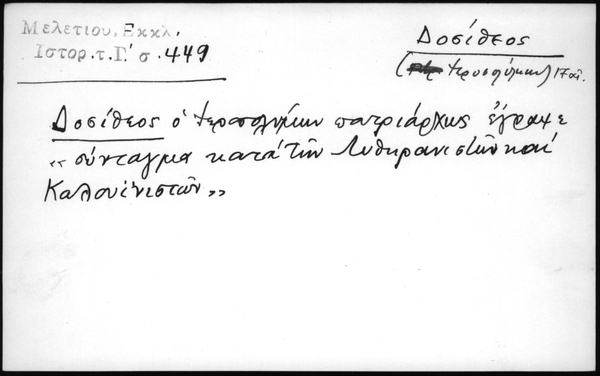 Μελετίου, Εκκλ.
Ιστορ. τ. Γ' σ. 449
Δοσίθεος
(Ιεροσολύμων) 17 αι.
Δοσίθεος ὁ Ιεροσολύμων πατριάρχης ἔγραψε
« σύνταγμα κατά τῶν Λυθηρανιστῶν καί
Καλουϊνιστῶν »